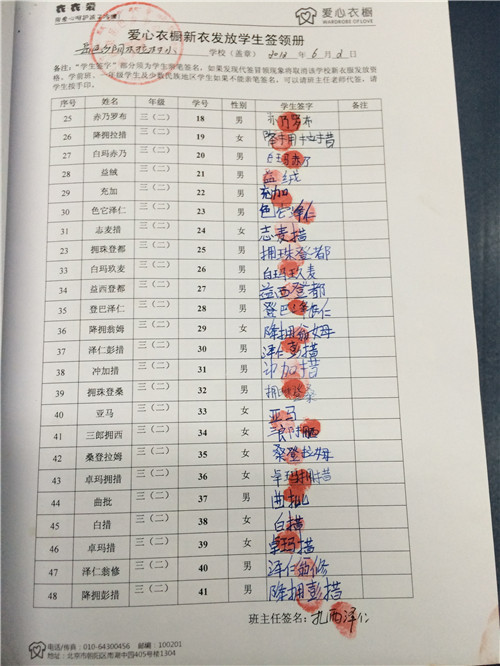 衣衣爱
爱心衣橱
WARDROBE OF LOVE
爱心衣橱新衣发放学生签领册
学校（盖章） 2014 年 6 月 2 日
备注：“学生签字”部分须为学生亲笔签名，如果发现代签冒领现象将取消该学校新衣服发放资
格。学前班、一年级学生及少数民族地区学生如果不能亲笔签名，可以请班主任老师代签，请
学生按手印。
序号 姓名 年级 学号 性别 学生签字 备注
25 赤乃罗布 三（二） 18 男 赤乃罗布
26 降拥拉措 三（二） 19 女 降拥拉措
27 白玛赤乃 三（二） 20 男 白玛赤乃
28 益绒 三（二） 21 男 益绒
29 充加 三（二） 22 男 充加
30 色它泽仁 三（二） 23 男 色它泽仁
31 志麦措 三（二） 24 女 志麦措
23 拥珠登都 三（二） 25 男 拥珠登都
33 白玛玖麦 三（二） 26 男 白玛玖麦
34 益西登都 三（二） 27 男 益西登都
35 登巴泽仁 三（二） 28 男 登巴泽仁
36 降拥翁姆 三（二） 29 女 降拥翁姆
37 泽仁彭措 三（二） 30 男 泽仁彭措
38 冲加措 三（二） 31 男 冲加措
39 拥珠登桑 三（二） 32 男 拥 桑
40 亚马 三（二） 33 女 亚马
41 三郎拥西 三（二） 34 女 三郎拥西
42 桑登拉姆 三（二） 35 女 桑登拉姆
43 卓玛拥措 三（二） 36 女 卓玛拥措
44 曲批 三（二） 37 男 曲批
45 白措 三（二） 38 女 白措
46 卓玛措 三（二） 39 女 卓玛措
47 泽仁翁修 三（二） 40 男 泽仁翁修
48 降拥彭措 三（二） 41 男 降拥彭措
班主任签名：扎西泽仁
电话/传真：010-64300456 邮编：100201
地址：北京市朝阳区南湖中园405号楼1304